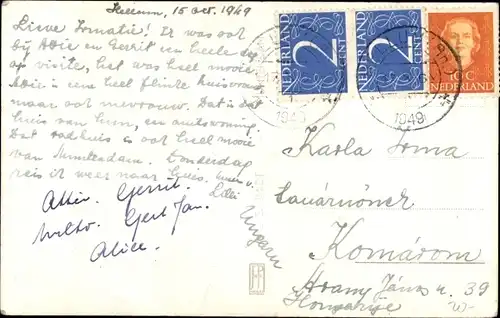 15 Oct. 1949
Lieve Irmatie! Ik was ook
bij Attie en Gerrit een heele dag
op visite, het was heel mooi.
Attie is een heel flinke huisvrouw
maar ook mevrouw. Dat is dat
huis van hun, een ambtswoning.
Dat radhuis is ook heel mooi
van Munstadam. Donderdag
reis ik weer naar huis.
Lili
Attie. Gerrit.
Gert Jan.
Alice.
NEDERLAND
2
CENT
NEDERLAND
2
CENT
10 C
NEDERLAND
1949
1949
Karla Irma
tanárnőnek
Komárom
Arany János u. 39
Hongarije
Ungarn